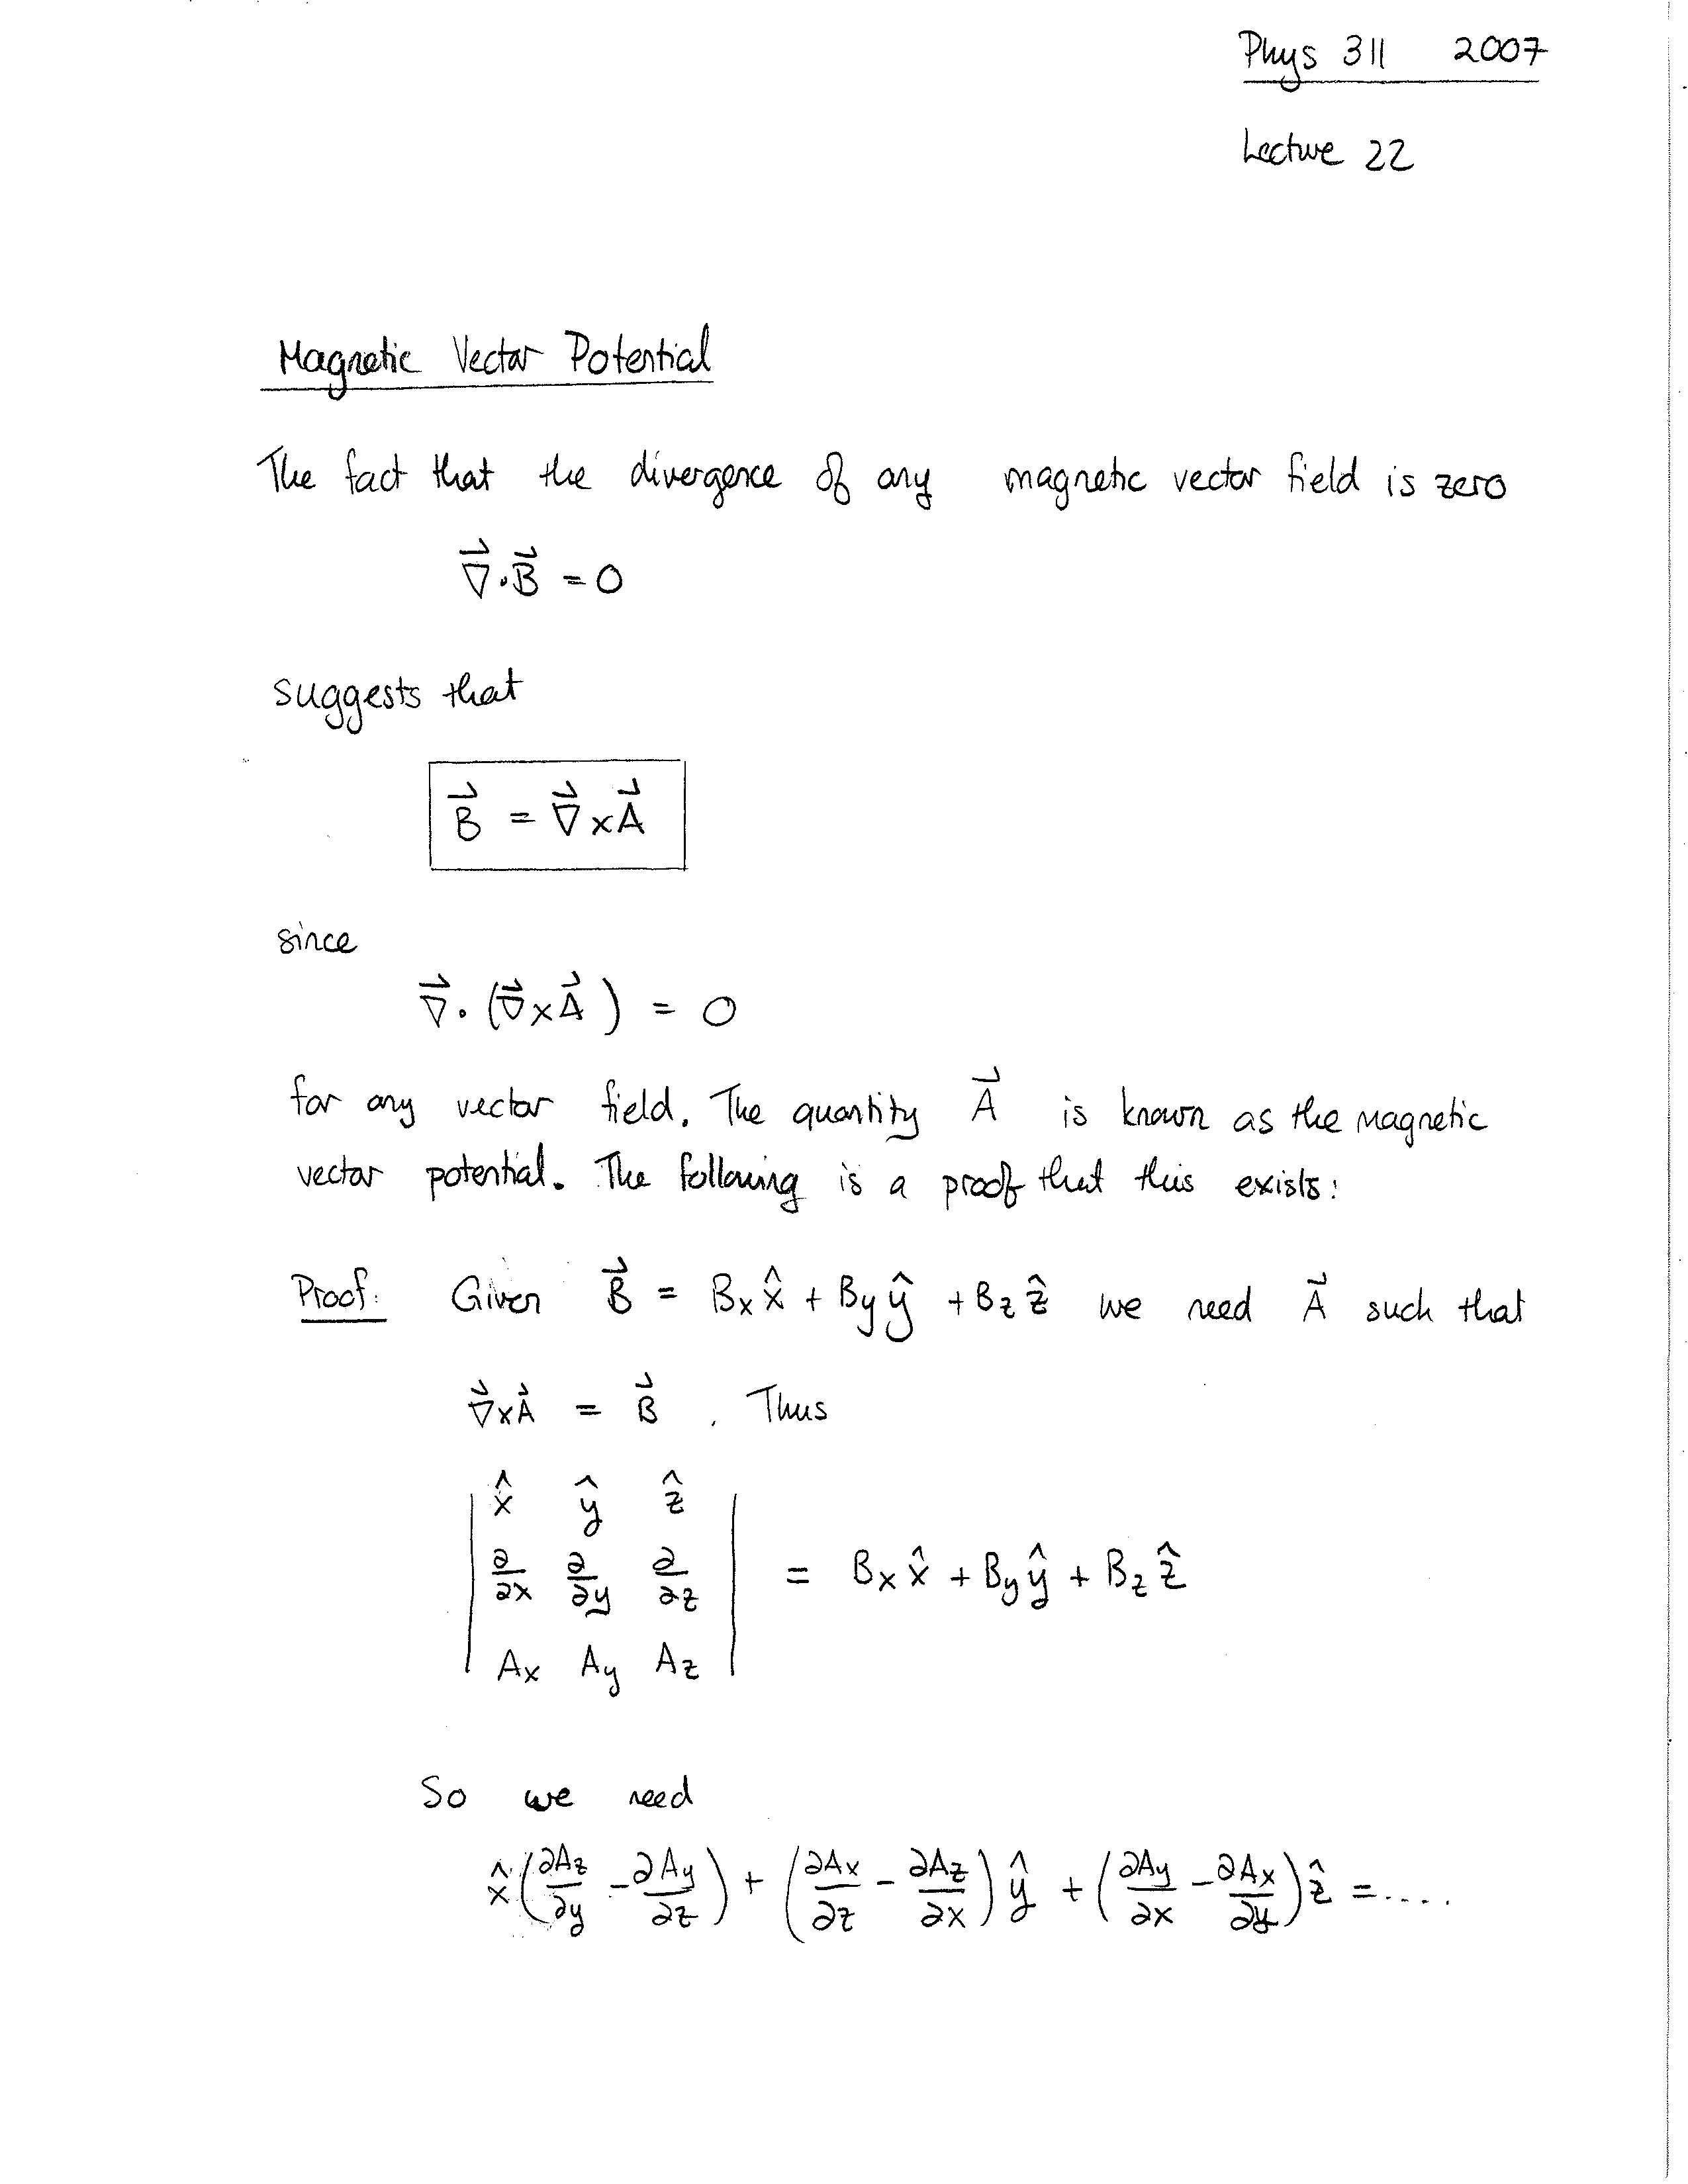 Phys 311 2007
Lecture 22
Magnetic Vector Potential
The fact that the divergence of any magnetic vector field is zero
$\vec{\nabla} \cdot \vec{B} = 0$
suggests that
$\vec{B} = \vec{\nabla} \times \vec{A}$
since
$\vec{\nabla} \cdot (\vec{\nabla} \times \vec{A}) = 0$
for any vector field. The quantity $\vec{A}$ is known as the magnetic
vector potential. The following is a proof that this exists:
Proof: Given $\vec{B} = B_x \hat{x} + B_y \hat{y} + B_z \hat{z}$ we need $\vec{A}$ such that
$\vec{\nabla} \times \vec{A} = \vec{B}$. Thus
$\begin{vmatrix} \hat{x} & \hat{y} & \hat{z} \\ \frac{\partial}{\partial x} & \frac{\partial}{\partial y} & \frac{\partial}{\partial z} \\ A_x & A_y & A_z \end{vmatrix} = B_x \hat{x} + B_y \hat{y} + B_z \hat{z}$
So we need
$\hat{x} \left( \frac{\partial A_z}{\partial y} - \frac{\partial A_y}{\partial z} \right) + \left( \frac{\partial A_x}{\partial z} - \frac{\partial A_z}{\partial x} \right) \hat{y} + \left( \frac{\partial A_y}{\partial x} - \frac{\partial A_x}{\partial y} \right) \hat{z} = ....$